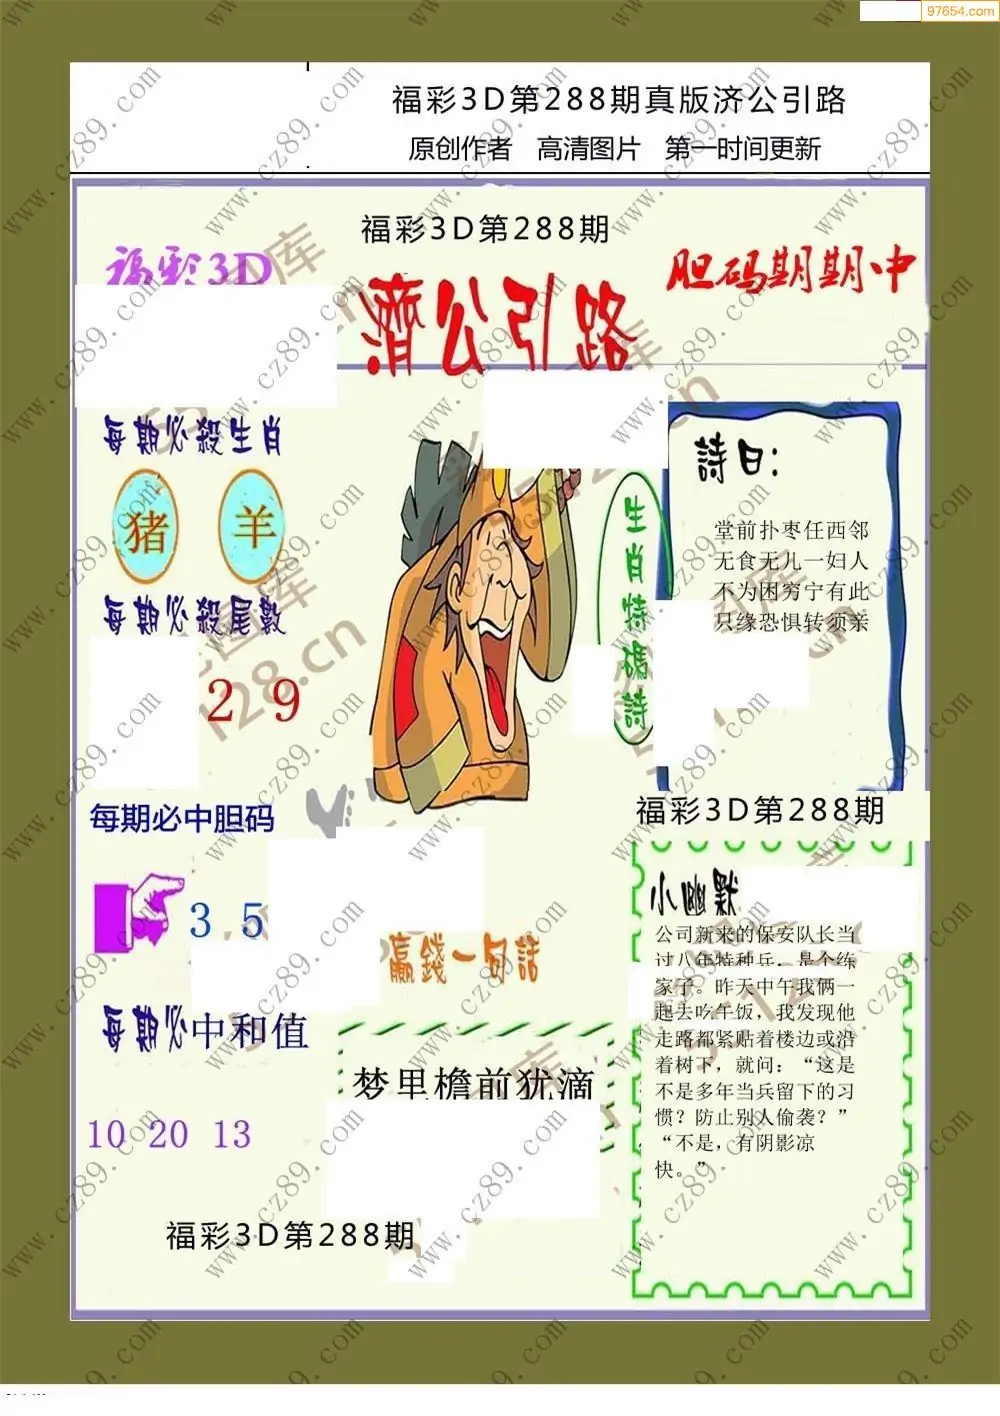 97654.com
福彩3D第288期真版济公引路
原创作者 高清图片 第一时间更新
福彩3D第288期
福彩3D
濟公引路
胆码期期中
每期必殺生肖
猪 羊
每期必殺尾數
2 9
每期必中胆码
3 5
每期必中和值
10 20 13
福彩3D第288期
生肖特碼詩
詩曰:
堂前扑枣任西邻
无食无儿一妇人
不为困穷宁有此
只缘恐惧转须亲
福彩3D第288期
贏錢一句話
梦里檐前犹滴
小幽默
公司新来的保安队长当
过八年特种兵，是个练
家子。昨天中午我俩一
起去吃午饭，我发现他
走路都紧贴着楼边或沿
着树下，就问：“这是
不是多年当兵留下的习
惯？防止别人偷袭？”
“不是，有阴影凉
快。”
www.cz89.com